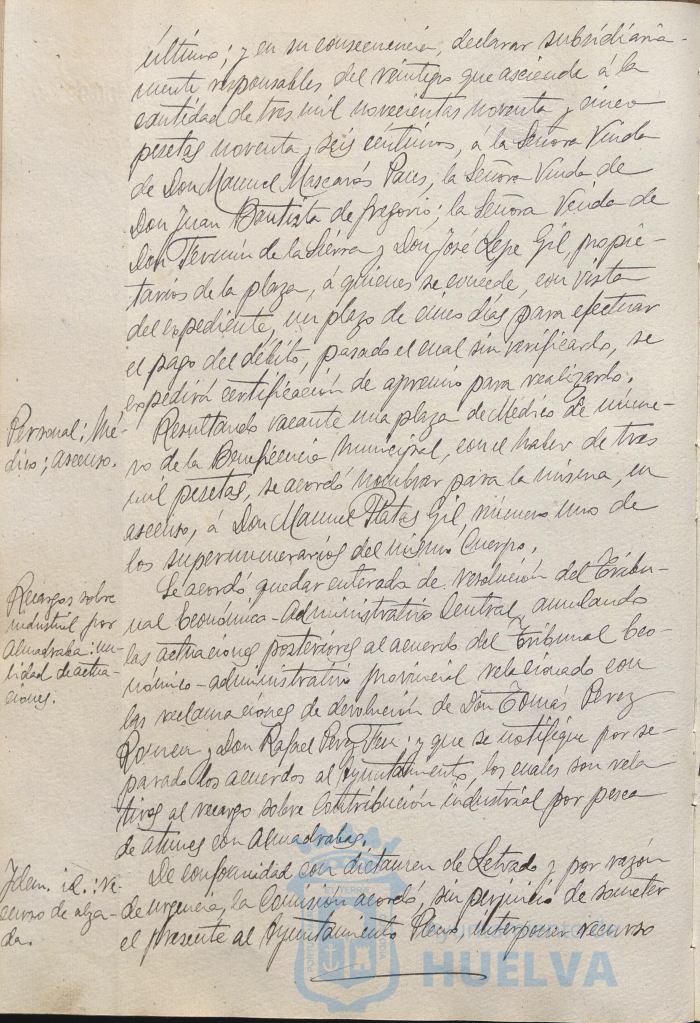 último; y en su consecuencia, declarar subsidiaria-
mente responsables del reintegro que asciende á la
cantidad de tres mil novecientas noventa y cinco
pesetas noventa y seis céntimos, á la Señora Viuda
de Don Manuel Mascarós Paus; la Señora Viuda de
Don Juan Bautista de Gregorio; la Señora Viuda de
Don Fermín de la Sierra y Don José Lepe Gil, propie-
tarios de la plaza, á quienes se concede, con vista
del expediente, un plazo de cinco días para efectuar
el pago del débito, pasado el cual sin verificarlo, se
expedirá certificación de apremio para realizarlo.
Personal; Mé-
dico; ascenso.
Resultando vacante una plaza de Médico de núme-
ro de la Beneficencia Municipal, con el haber de tres
mil pesetas, se acordó nombrar para la misma, en
ascenso, á Don Manuel Platas Gil, número uno de
los supernumerarios del mismo Cuerpo.
Recargos sobre
industrial por
Almadraba: nu-
lidad de actua-
ciones.
Se acordó quedar enterada de resolución del Tribu-
nal Económico-Administrativo Central, anulando
las actuaciones posteriores al acuerdo del Tribunal Eco-
nómico-administrativo provincial relacionado con
las reclamaciones de devolución de Don Tomás Perez
Romeu y Don Rafael Perez Feu; y que se notifique por se-
parado los acuerdos al Ayuntamiento, los cuales son rela-
tivos al recargo sobre Contribución industrial por pesca
de atunes con Almadrabas.
Idem. id.: re-
curso de alza-
da.
De conformidad con dictamen de Letrado y por razón
de urgencia, la Comisión acordó, sin perjuicio de someter
el presente al Ayuntamiento Pleno, interponer recurso
HUELVA